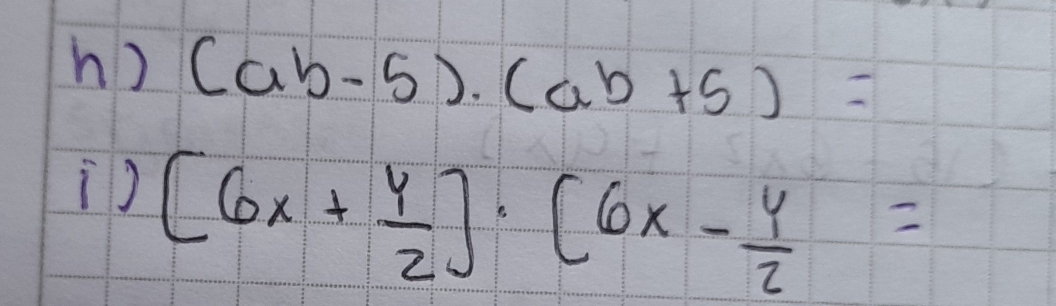 h) (ab-5).(ab+5) =
i) [6x + y/2] · [6x - y/2 =